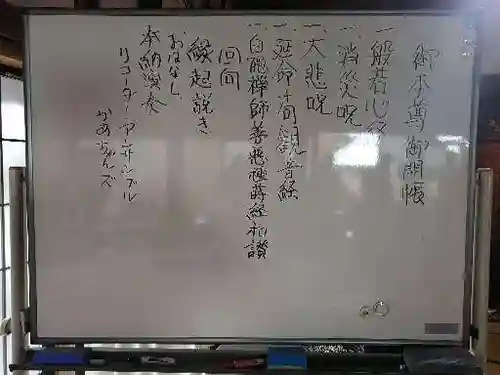 御本尊御開帳
一、般若心経
一、消災呪
一、大悲呪
一、延命十句観音経
一、白隠禅師善悪種蒔経和讃
回向
縁起説き
おはなし
奉納演奏
リコーダーアンサンブル
かあちゃんズ